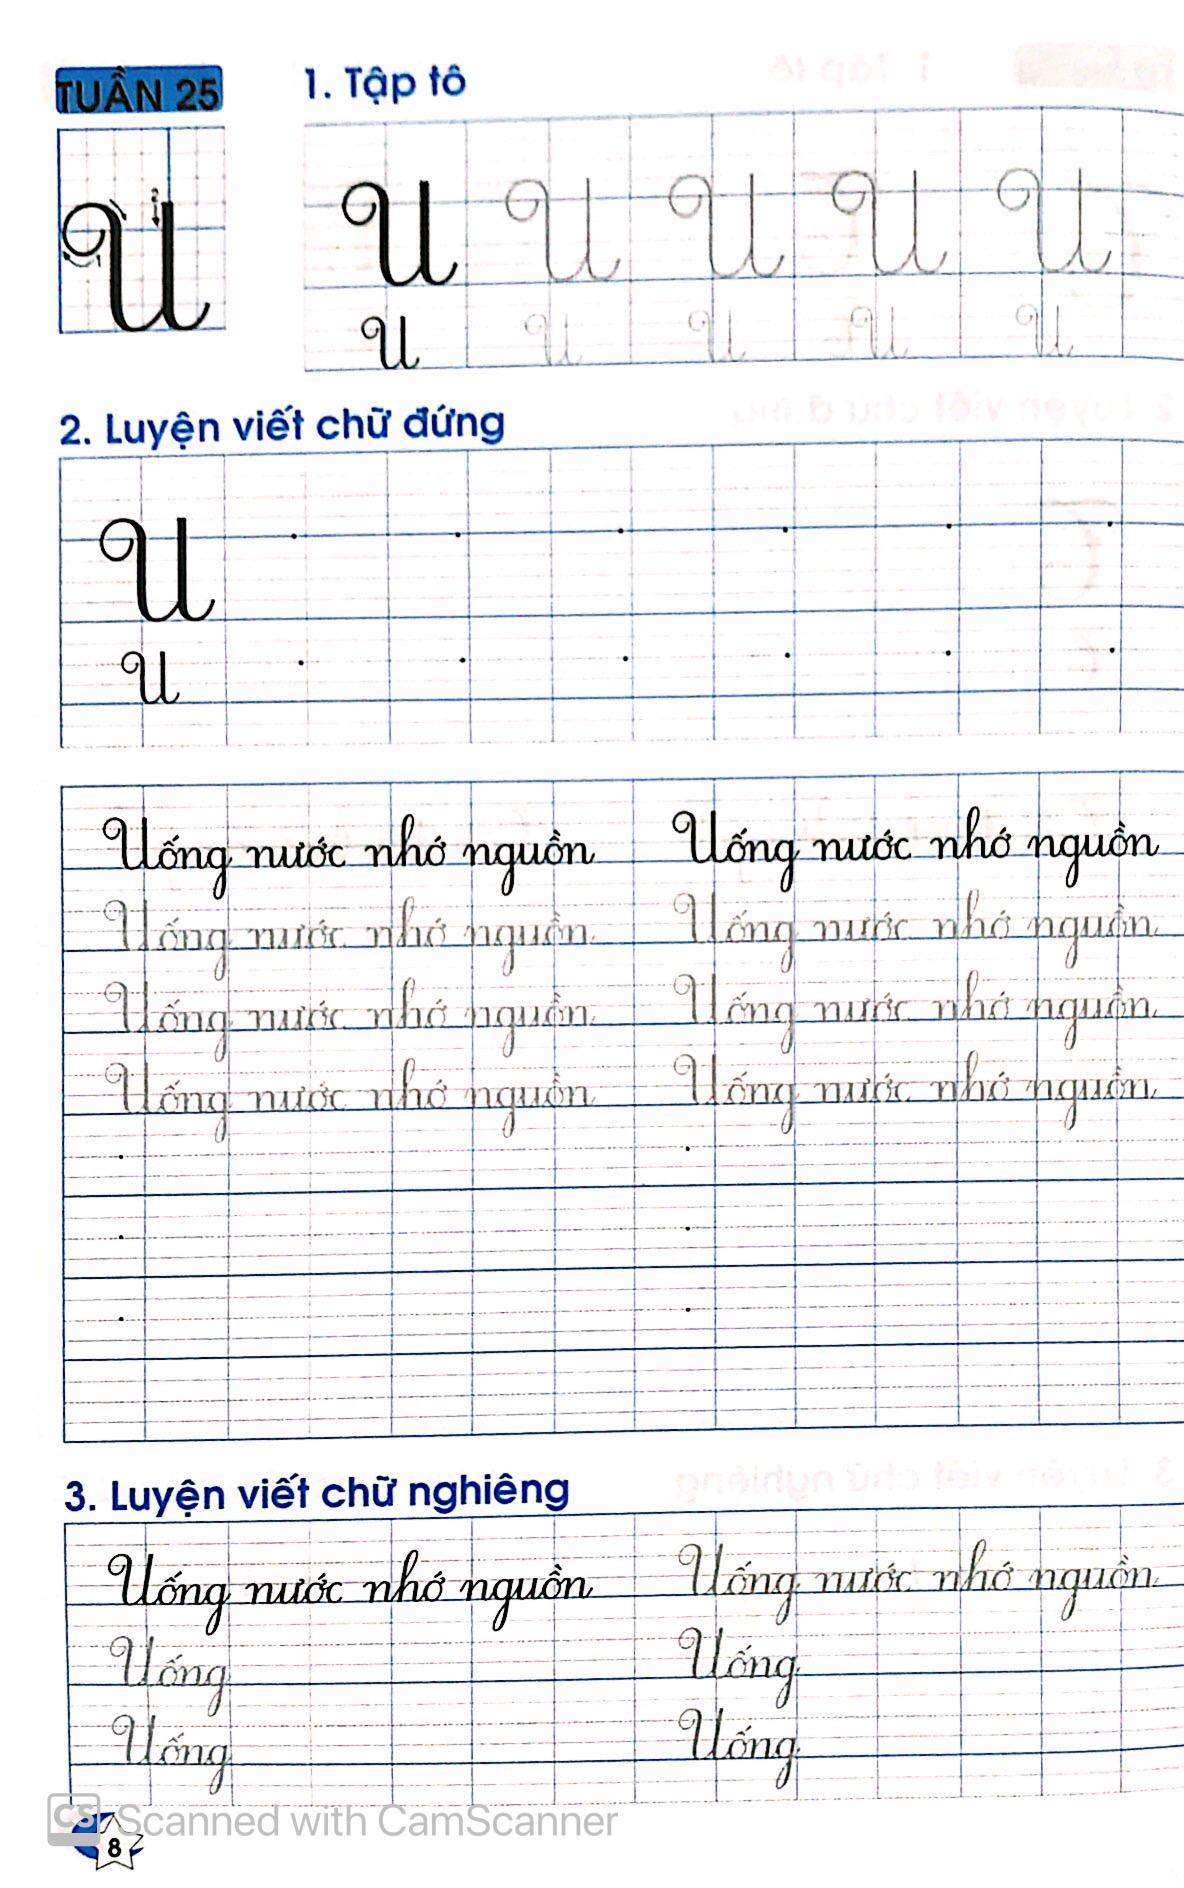 TUẦN 25
1. Tập tô
U U U U U
U U U U U
2. Luyện viết chữ đứng
U
U
Uống nước nhớ nguồn Uống nước nhớ nguồn
Uống nước nhớ nguồn Uống nước nhớ nguồn
Uống nước nhớ nguồn Uống nước nhớ nguồn
Uống nước nhớ nguồn Uống nước nhớ nguồn
3. Luyện viết chữ nghiêng
Uống nước nhớ nguồn Uống nước nhớ nguồn
Uống Uống
Uống Uống
CS Scanned with CamScanner
8